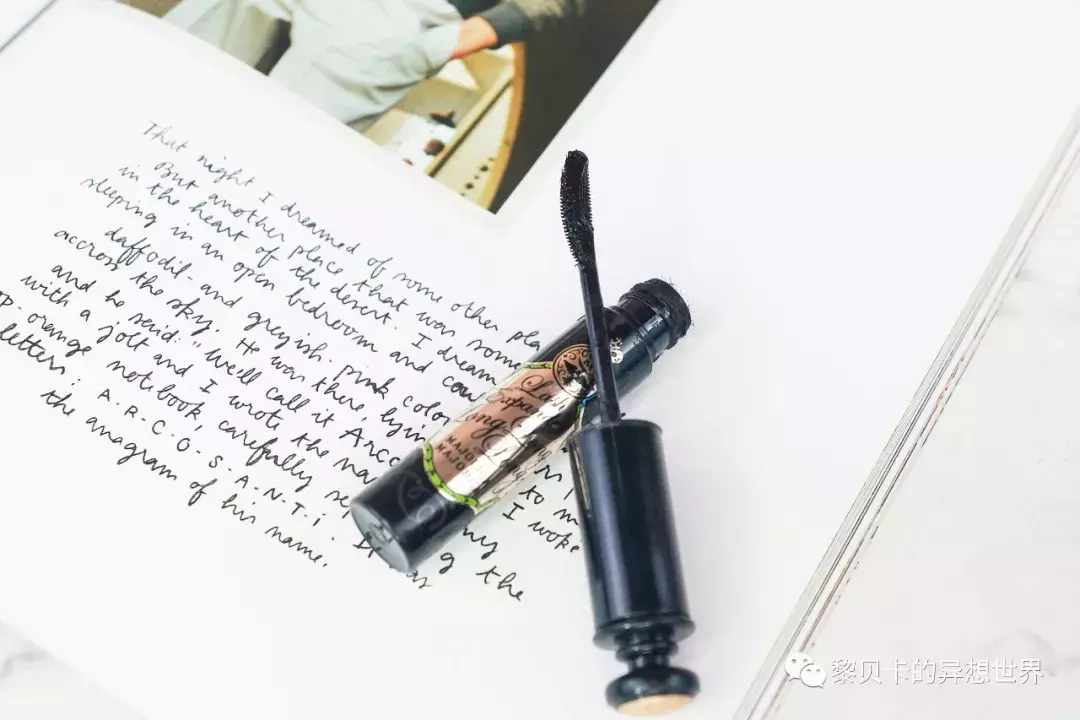 That night I dreamed of some other pla
But another place that was some
in the heart of the desert. I dream
sleeping in an open bedroom and
daffodil-and greyish. pink color
accross the sky. He was there, lyin
and he said: "We'll call it Arco
with a jolt and I wrote the na to m I woke
orange notebook, carefully se my
letters. A.R.C.O.S.A.N.T.i. g the
the anagram of his name.
Lash
Expander
Long Long Long
MAJO
MAJO
黎贝卡的异想世界